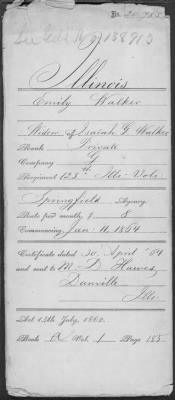 Illinois
Emily Walker
Widow of Isaiah G Walker
Rank Private
Company G
Regiment 125th Ills Vols
Springfield Agency
Rate per month, $ 8
Commencing Jan 11 1864
Certificate dated 30 April '64
and sent to M. D. Hawes
Danville
Ills
Act 14th July, 1862.
Book D Vol. 1 Page 155